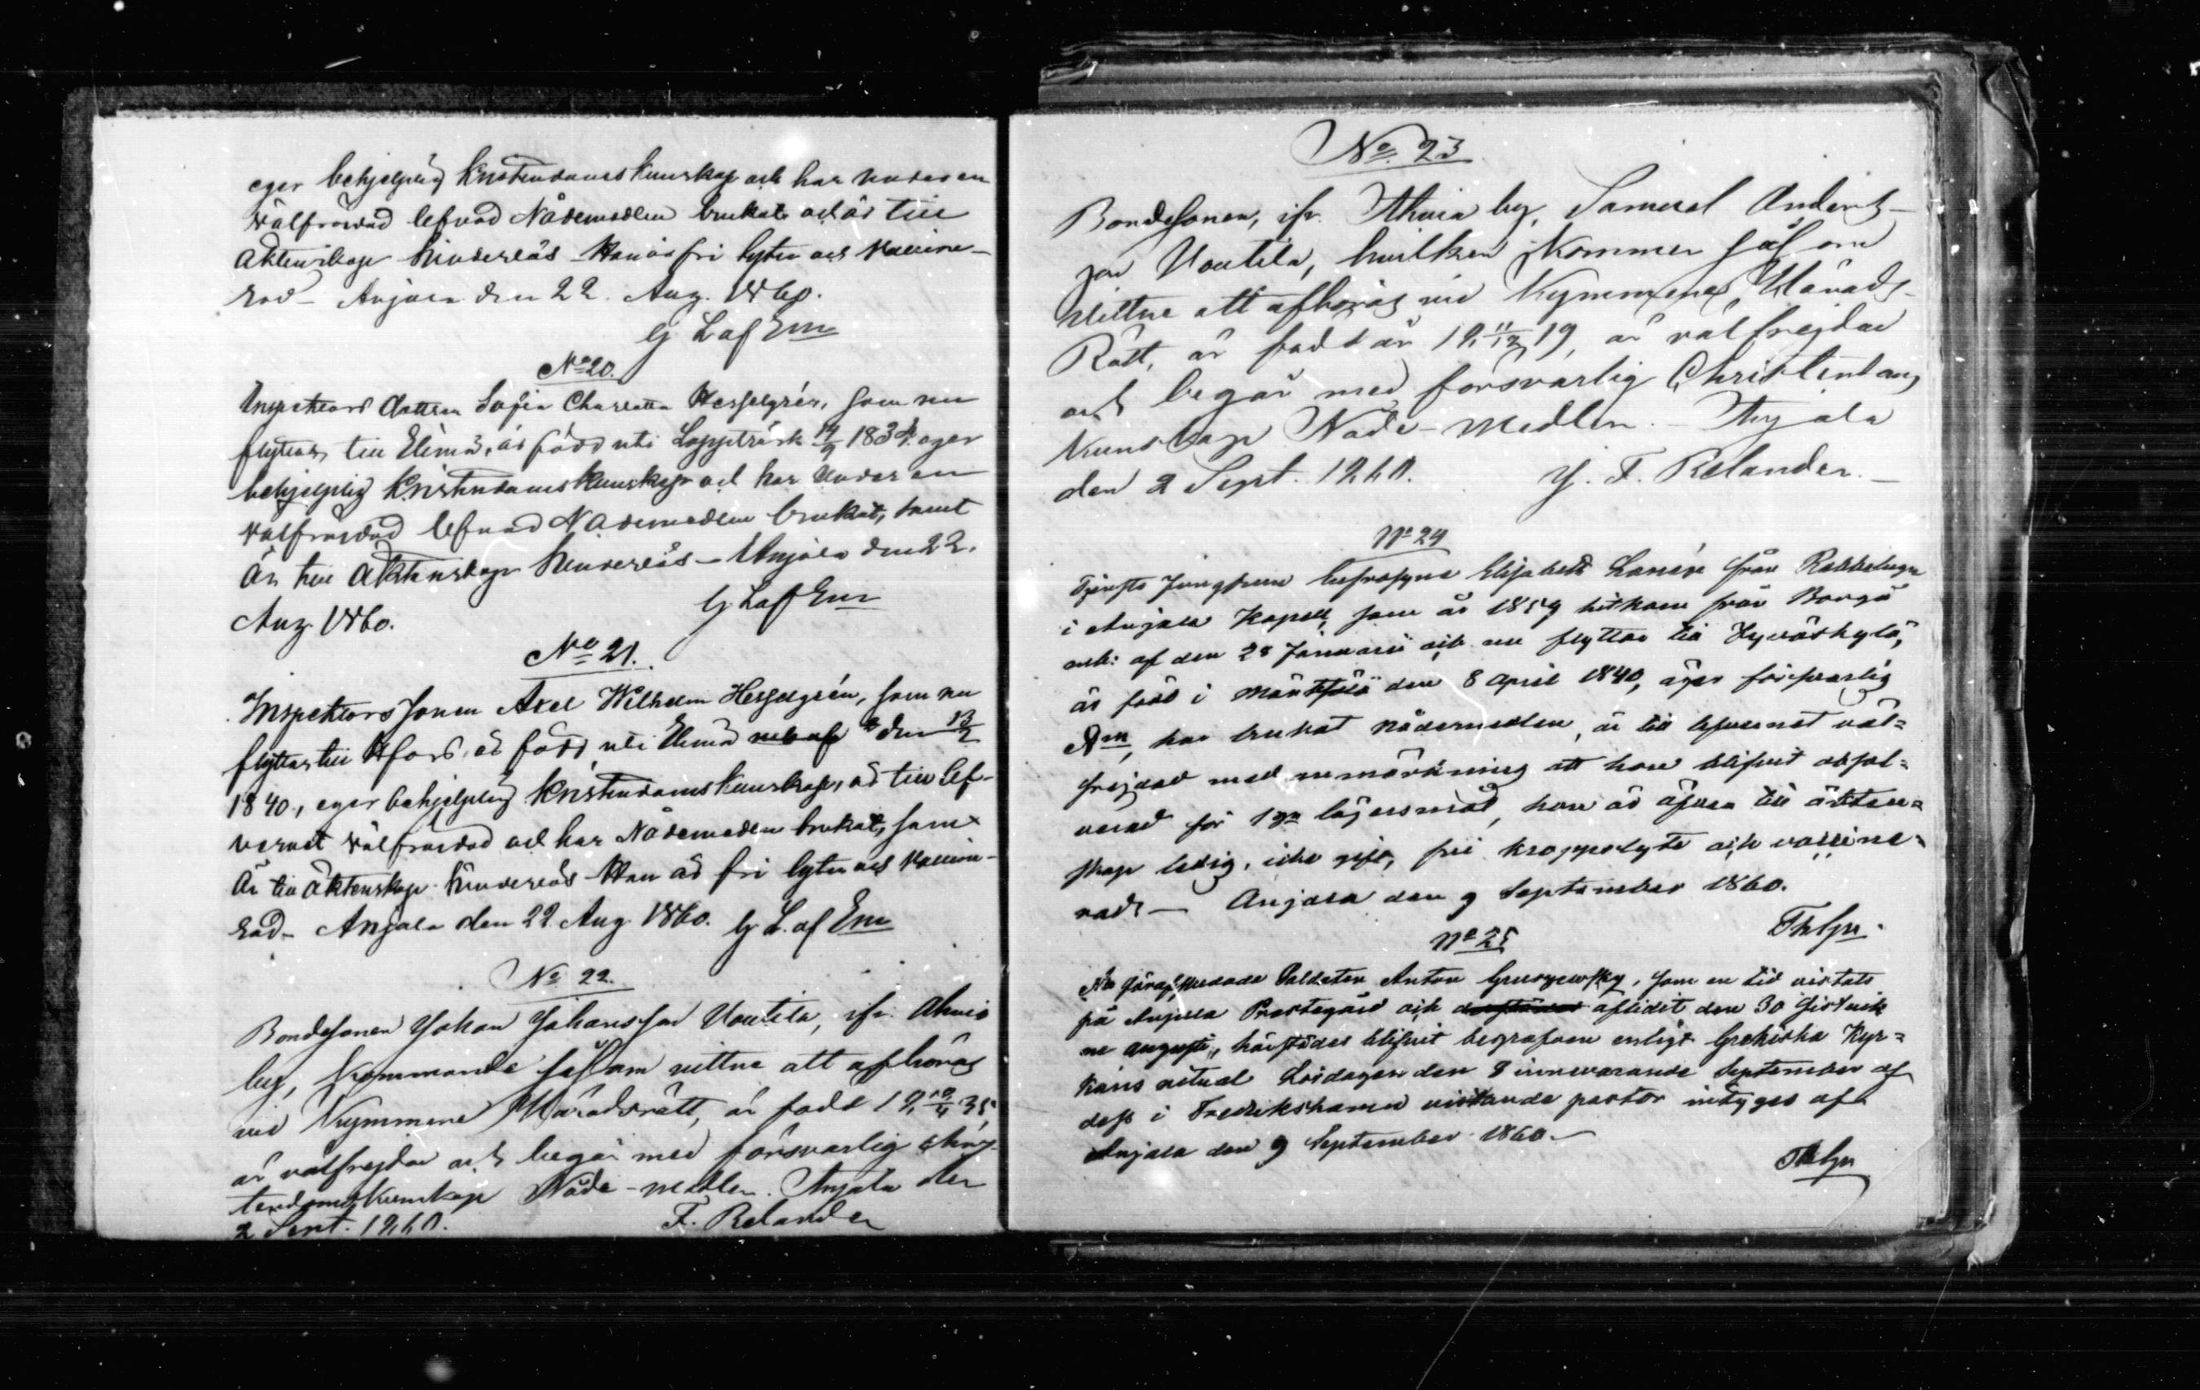 eger behjelplig Kristendomskunskap och har under en
välfrejdad lefnad Nådemedlen brukat och är till
Äktenskap hinderlös Han är fri lyten och Vaccine-
rad - Anjala den 22. Aug. 1860.
G L af Enn
No 20.
Inspektors dottern Sofia Charlotta Hesselgrén, som nu
flyttar till Elimä, är född uti Lappträsk 14/9 1834. eger
behjelplig Kristendomskunskap och har under en
välfrejdad lefnad Nådemedlen brukat, samt
är till Äktenskap hinderlös - Anjala den 22.
Aug. 1860.
G L af Enn
No 21.
Inspektors sonen Axel Wilhelm Hesselgrén, som nu
flyttar till Hfors, är född uti Elimä den 13/2
1840, eger behjelplig Kristendomskunskap, är till lef-
vernet välfrejdad och har Nådemedlen brukat, samt
är till Äktenskap hinderlös Han är fri lyten och Vaccine-
rad - Anjala den 22 Aug. 1860. G L. af Enn
No 22.
Bondesonen Johan Johansson Voutila, ifr. Ahvio
by, Kommande såsom vittne att afhöras
vid Kymmene Häradsrätt, är född 18 10/4 35,
är välfrejdad och begår med försvarlig Chris-
tendomskunskap Nåde-medlen. Anjala den
2 Sept. 1860. F. Relander
No. 23
Bondesonen, ifr. Ahvio by, Samuel Anders-
son Voutila, hvilken Kommer såsom
vittne att afhöras vid Kymmene Härads-
Rätt, är född år 18 11/12 19, är välfrejdad
och begår med försvarlig Christendoms
Kunskap Nåde-medlen. - Anjala
den 2 Sept. 1860. J. F. Relander. -
No 24
Tjensts Jungfrun Eufrosyne Elisabeth Lonén från Rabbelugn
i Anjala Kapell, som år 1859 hitkom från Borgå
enl: af den 28 Januarii och nu flyttar till Jyväskylä,
är född i Mäntsälä den 8 April 1840, äger försvarlig
, har brukat nådemedlen, är till lefvernet väl=
frejdad med anmärkning att hon blifvit absol=
verad för 1sta lägersmål, hon är äfven till äkten=
skap ledig, icke gift, fri kroppslyte och vaccine=
rad - Anjala den 9 September 1860.
Th Gn.
No 25
Att förafskedade Soldaten Anton Gruszewsky, som en tid vistats
på Anjala Prestegård och aflidit den 30 sistvik
ne augusti, härstädes blifvit begrafven enligt Grekiska Kyr=
kans ritual Lördagen den 8 innevarande September af
dess i Fredrikshamn vistande pastor intygas af
Anjala den 9 September 1860 -
Th Gn